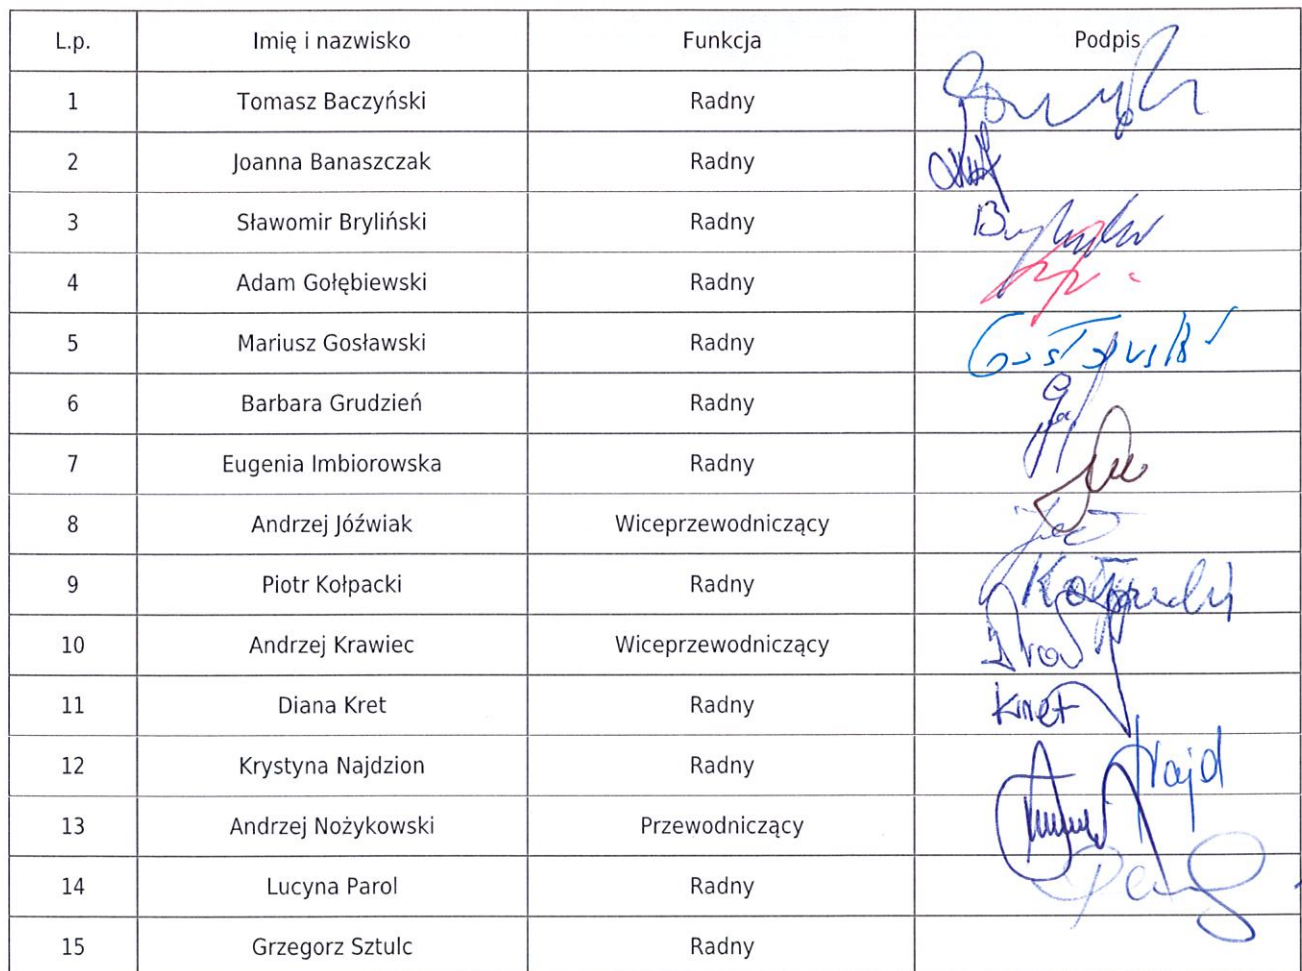 L.p. Imię i nazwisko Funkcja Podpis
1 Tomasz Baczyński Radny
2 Joanna Banaszczak Radny
3 Sławomir Bryliński Radny
4 Adam Gołębiewski Radny
5 Mariusz Gosławski Radny
6 Barbara Grudzień Radny
7 Eugenia Imbiorowska Radny
8 Andrzej Jóźwiak Wiceprzewodniczący
9 Piotr Kołpacki Radny Kołpacki
10 Andrzej Krawiec Wiceprzewodniczący
11 Diana Kret Radny Kret
12 Krystyna Najdzion Radny Najd
13 Andrzej Nożykowski Przewodniczący
14 Lucyna Parol Radny
15 Grzegorz Sztulc Radny